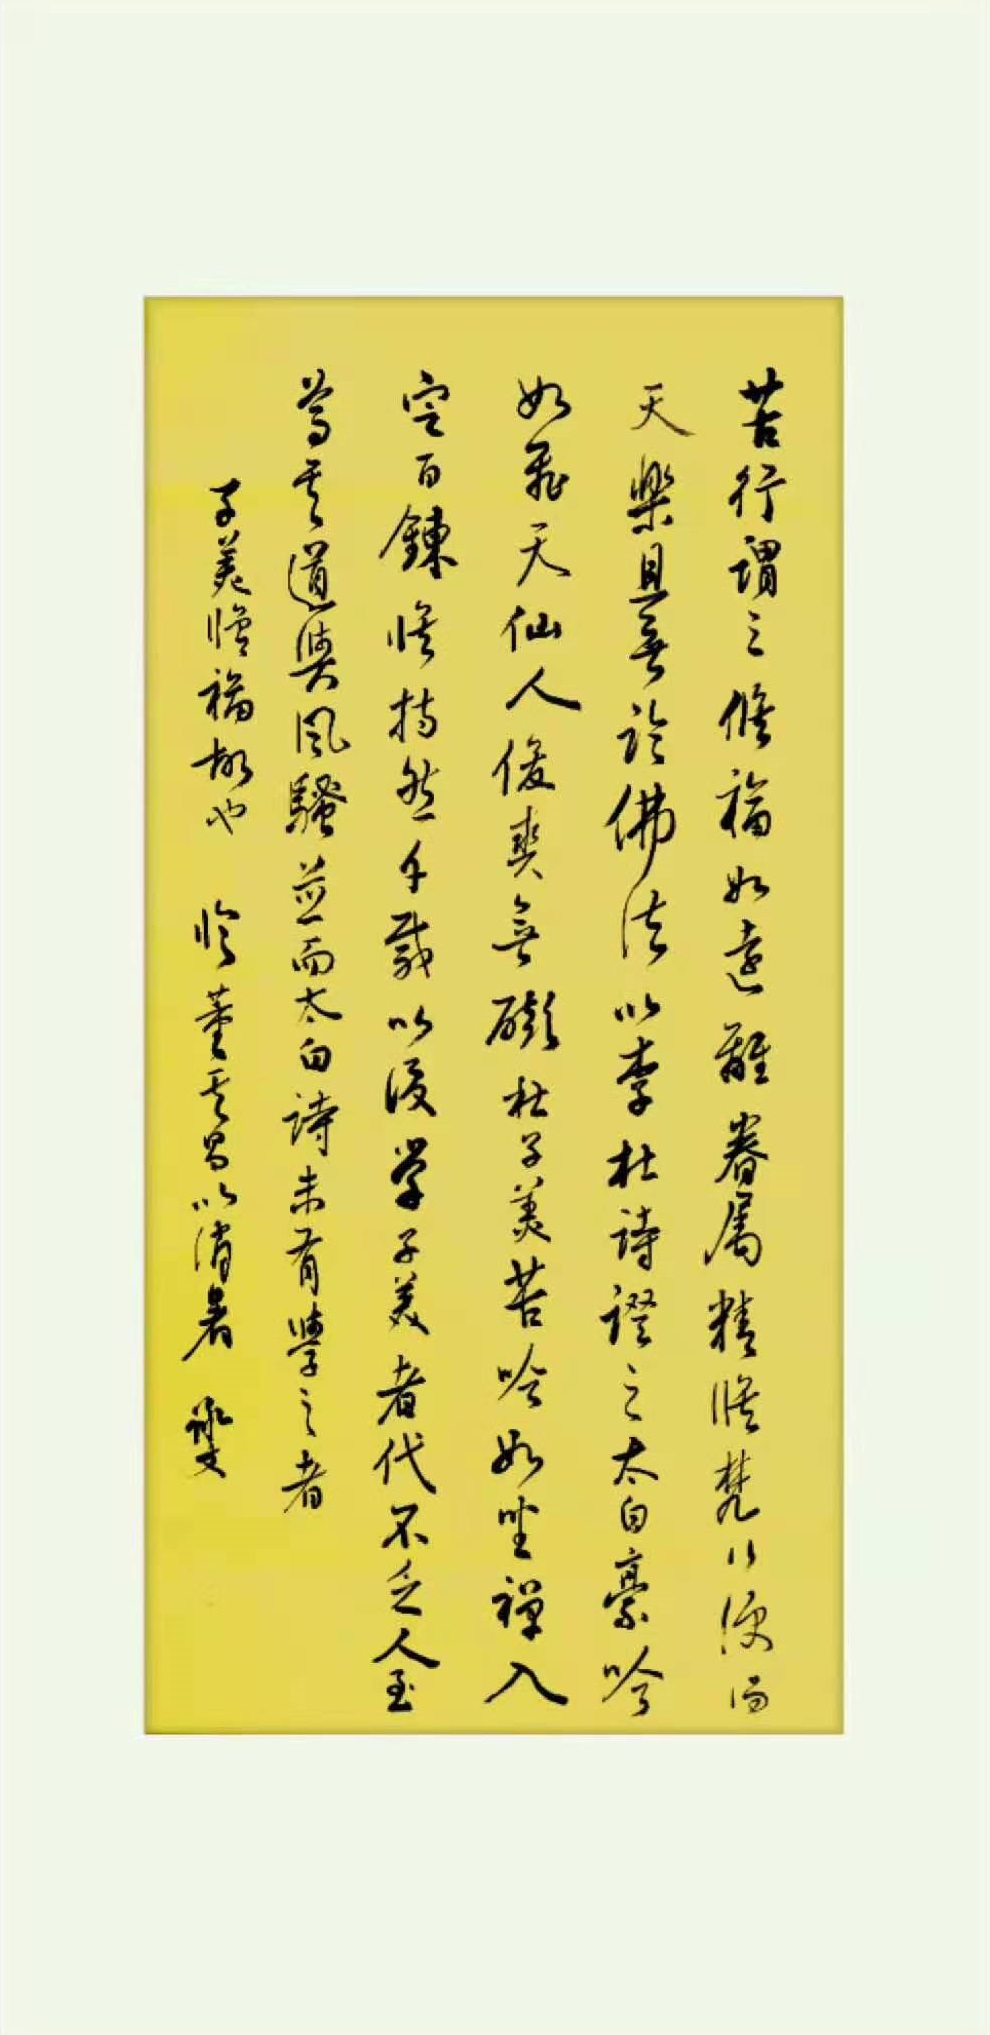 苦行謂之修福如遠離眷屬精修梵行便而
天樂且無論佛法以李杜詩證之太白豪吟
如飛天仙人俊爽無礙杜子美苦吟如坐禪入
定百鍊修持然千載以後学子美者代不乏人至
等其道與風騷並而太白詩未有學之者
子美修福故也 臨董其昌以消暑